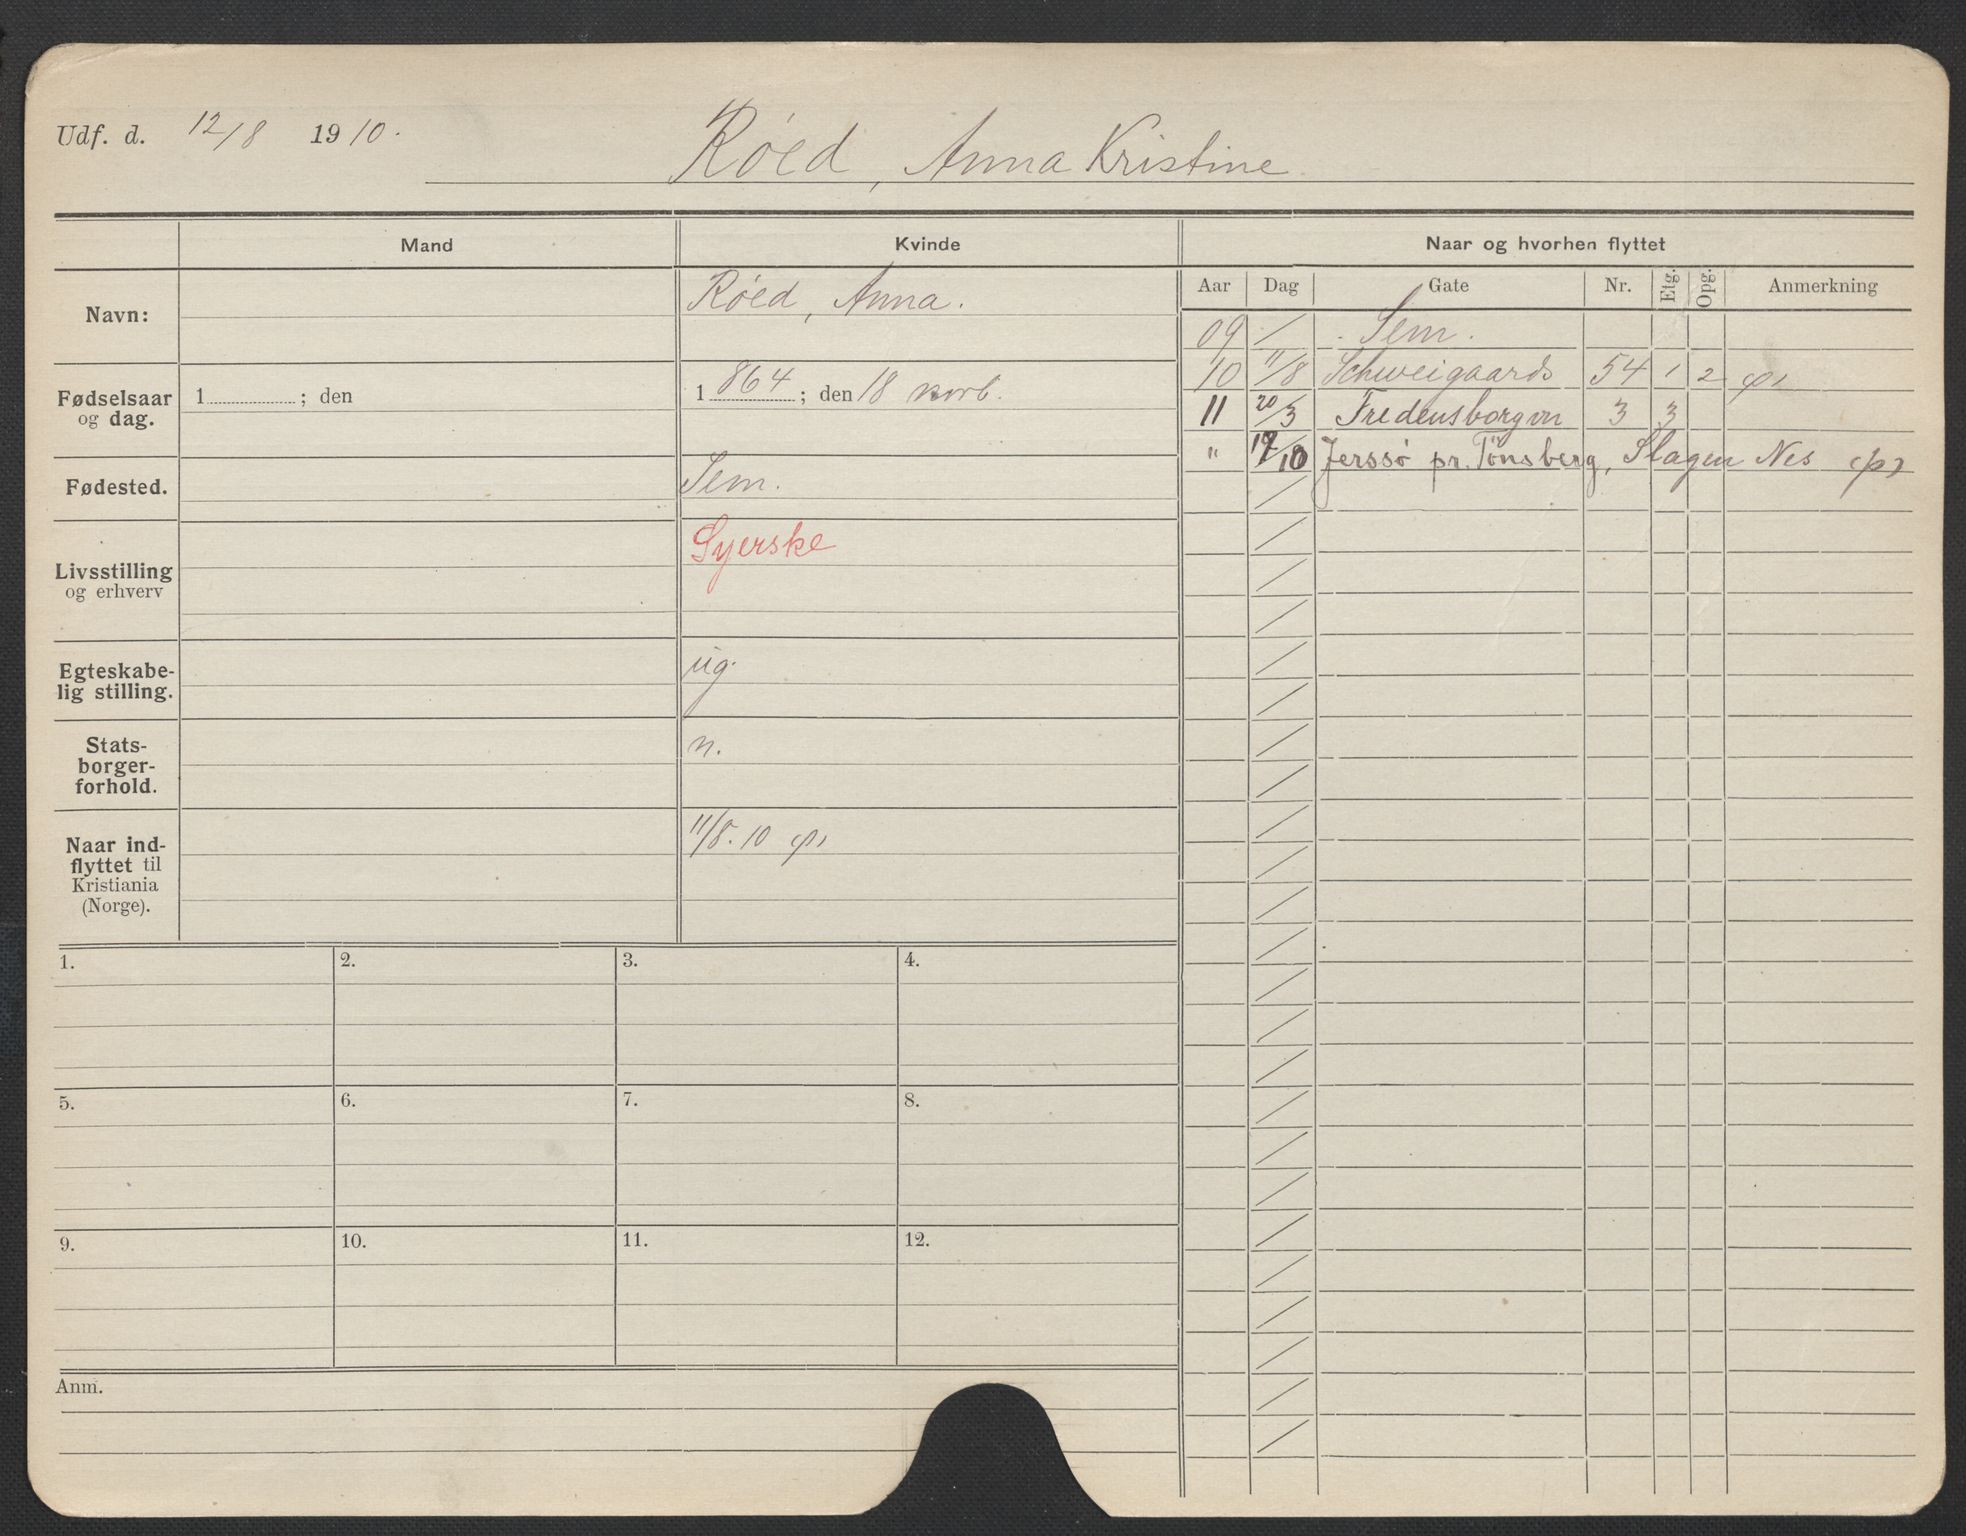 Udf. d. 12/8 1910.
Røed, Anna Kristine
Mand
Kvinde
Naar og hvorhen flyttet
Navn:
Røed, Anna.
Aar Dag Gate Nr. Etg. Opg. Anmerkning
09 / Sem.
10 11/8 Schweigaards 54 1 2
11 20/3 Fredensborgvn 3 3
" /10 Jerssø pr. Tönsberg, Slagen Nes
Fødselsaar og dag.
1 ; den
1864 ; den 18 novb.
Fødested.
Sem.
Livsstilling og erhverv
Syerske
Egteskabe-
lig stilling.
ug.
Stats-
borger-
forhold.
n.
Naar ind-
flyttet til
Kristiania
(Norge).
11/8. 10
1. 2. 3. 4.
5. 6. 7. 8.
9. 10. 11. 12.
Anm.